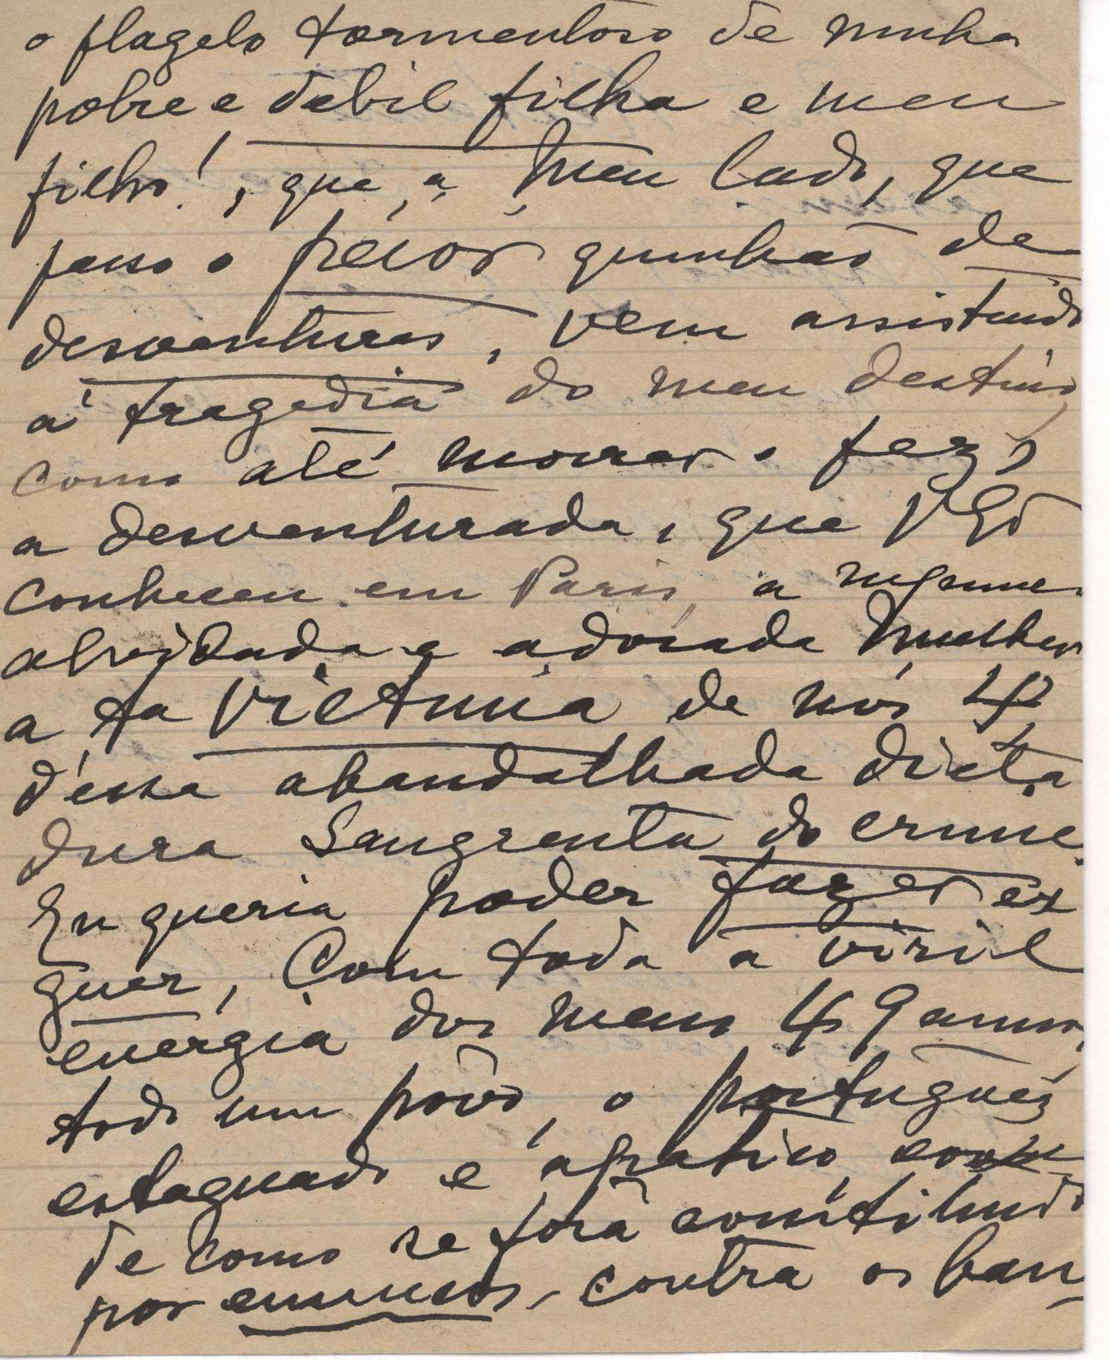 o flagelo tormentoso de minha
pobre e debil filha e meu
filho!, que, a meu lado, que
passo o peior quinhão de
desventuras, vem assistindo
à tragedia do meu destino,
como até morrer o fez,
a desventurada, que V. Exª
conheceu em Paris, a
olvidada e adorada mulher
a 1ª victima de nós 4,
d'essa abandalhada dicta
dura sangrenta do crime.
Eu queria poder fazer er
guer, com toda a viril
energia dos meus 49 annos,
todo um pôvo, o português
estagnado e apatico,
de como se fôra constituido
por eunucos, contra os ban-